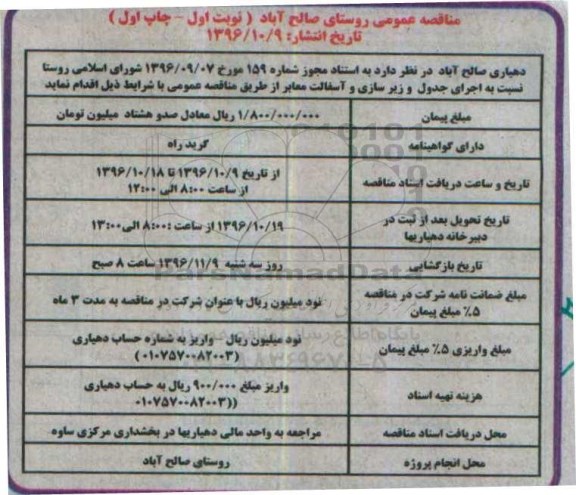 مناقصه عمومی روستای صالح آباد ( نوبت اول - چاپ اول )
تاریخ انتشار: ۱۳۹۶/۱۰/۹
دهیاری صالح آباد در نظر دارد به استناد مجوز شماره ۱۵۹ مورخ ۱۳۹۶/۰۹/۰۷ شورای اسلامی روستا
نسبت به اجرای جدول و زیر سازی و آسفالت معابر از طریق مناقصه عمومی با شرایط ذیل اقدام نماید
مبلغ پیمان
۱/۸۰۰/۰۰۰/۰۰۰ ریال معادل صدو هشتاد میلیون تومان
دارای گواهینامه
گرید راه
تاریخ و ساعت دریافت اسناد مناقصه
از تاریخ ۱۳۹۶/۱۰/۹ تا ۱۳۹۶/۱۰/۱۸
از ساعت ۸:۰۰ الی ۱۲:۰۰
تاریخ تحویل بعد از ثبت در
دبیرخانه دهیاریها
۱۳۹۶/۱۰/۱۹ از ساعت ۸:۰۰ الی ۱۳:۰۰
تاریخ بازگشایی
روز سه شنبه ۱۳۹۶/۱۱/۹ ساعت ۸ صبح
مبلغ ضمانت نامه شرکت در مناقصه
۵٪ مبلغ پیمان
نود میلیون ریال با عنوان شرکت در مناقصه به مدت ۳ ماه
مبلغ واریزی ۵٪ مبلغ پیمان
نود میلیون ریال واریز به شماره حساب دهیاری
(۰۱۰۷۵۷۰۰۸۲۰۰۳)
هزینه تهیه اسناد
واریز مبلغ ۹۰۰/۰۰۰ ریال به حساب دهیاری
((۰۱۰۷۵۷۰۰۸۲۰۰۳
محل دریافت اسناد مناقصه
مراجعه به واحد مالی دهیاریها در بخشداری مرکزی ساوه
محل انجام پروژه
روستای صالح آباد